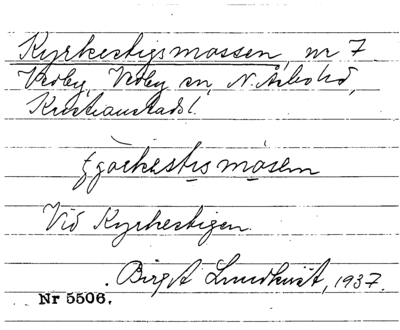 Kyrkestigsmossen, nr 7
Vedby, Vedby sn, N. Åsbo hd,
Kristianstads l.
Vid Kyrkestigen.
Birgit Lundkvist, 1937.
Nr 5506.